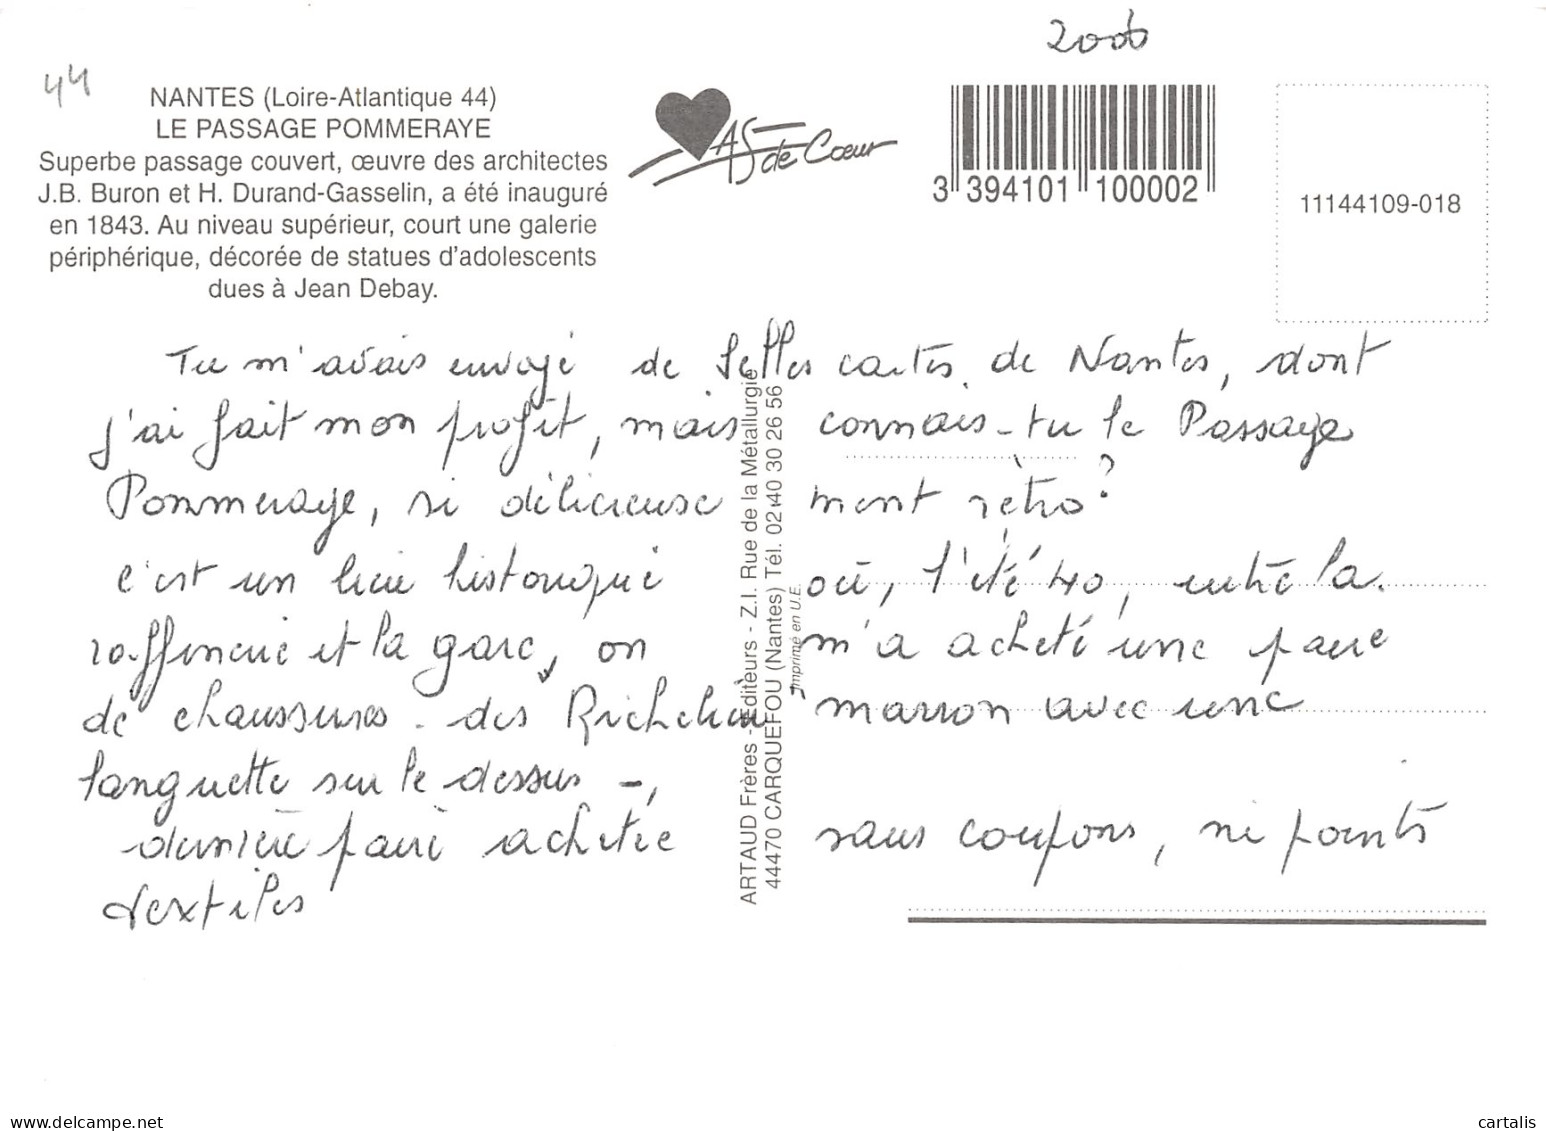 2000
44
NANTES (Loire-Atlantique 44)
LE PASSAGE POMMERAYE
Superbe passage couvert, œuvre des architectes
J.B. Buron et H. Durand-Gasselin, a été inauguré
en 1843. Au niveau supérieur, court une galerie
périphérique, décorée de statues d'adolescents
dues à Jean Debay.
AS de Cœur
3 394101 100002
11144109-018
Tu m'avais envoyé de belles cartes de Nantes, dont
j'ai fait mon profit, mais connais-tu le Passage
Pommeraye, si délicieusement rétro?
c'est un lieu historique où, l'été 40, entre la
raffinerie et la gare, on m'a acheté une paire
de chaussures - des Richelieu marron avec une
languette sur le dessus -,
dernière paire achetée sans coupons, ni points
textiles
ARTAUD Frères - Éditeurs - Z.I. Rue de la Métallurgie
44470 CARQUEFOU (Nantes) Tél. 02 40 30 26 56
Imprimé en U.E.
delcampe.net
cartalis